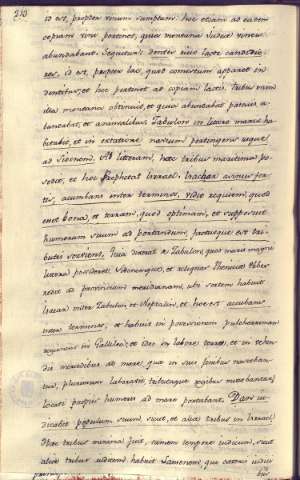 210
id est, propter vinum sumptum. hoc etiam ad eadem
copiam vini pertinet, quia montana Judae vineis
abundabant. Sequitur: dentes eius lacte candidio-
res, id est, propter lac, quod comestum apparet in
dentibus, et hoc pertinet ad copiam lactis. tribus nam
Juda montana obtinuit, et quia abundabat pascuis a-
bundabat, et animalibus. Zabulon in littore maris ha-
bitabit, et in statione navium pertingens usque
ad Sidonem. Ad litteram, haec tribus maritima pos-
sedit, et hoc Prophetat Israel. Isachar asinus for-
tis, accubans inter terminos, vidit requiem, quod
esset bona, et terram, quod optima, et supposuit
humerum suum ad portandum, factusque est tri-
butis serviens. Quia dixerat de Zabulon, quod maris magni
littora possideret Sidonemque, et reliquas Phenicis Urbes
redit ad provinciam mediterraneam, ubi sortem habuit
Isacar inter Zabulon et Neptalim, et hoc est accubans
inter terminos, et habuit in possessionem pulcherrimam
regionem in Galilea, et
dis mercibus ad mare, quae in suis finibus nasceban-
tur, plurimum laborabit, tributaque Regibus
locati propter humeros ad mare portabant. Dan iu-
dicabit populum suum, sicut, et aliae tribus in Israel,
Haec tribus minima fuit, tamen tempore iudicum, sicut
aliae tribus iudicem habuit Samsonem, qui